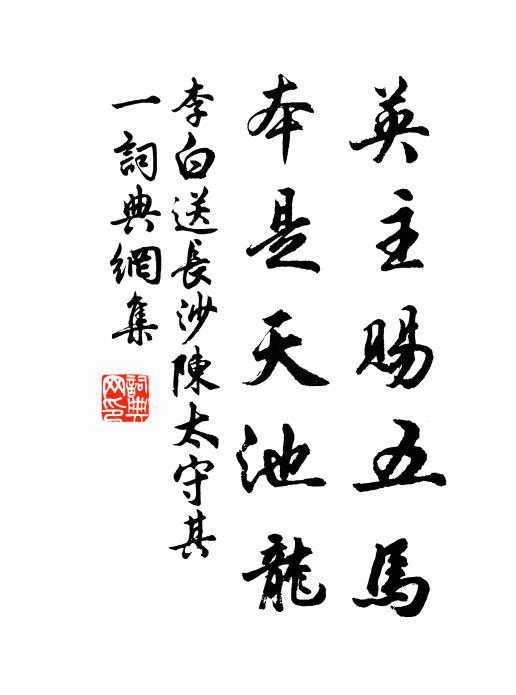 英主賜五馬
本是天池龍
李白送長沙陳太守其
一詞典網集
詞典
网印